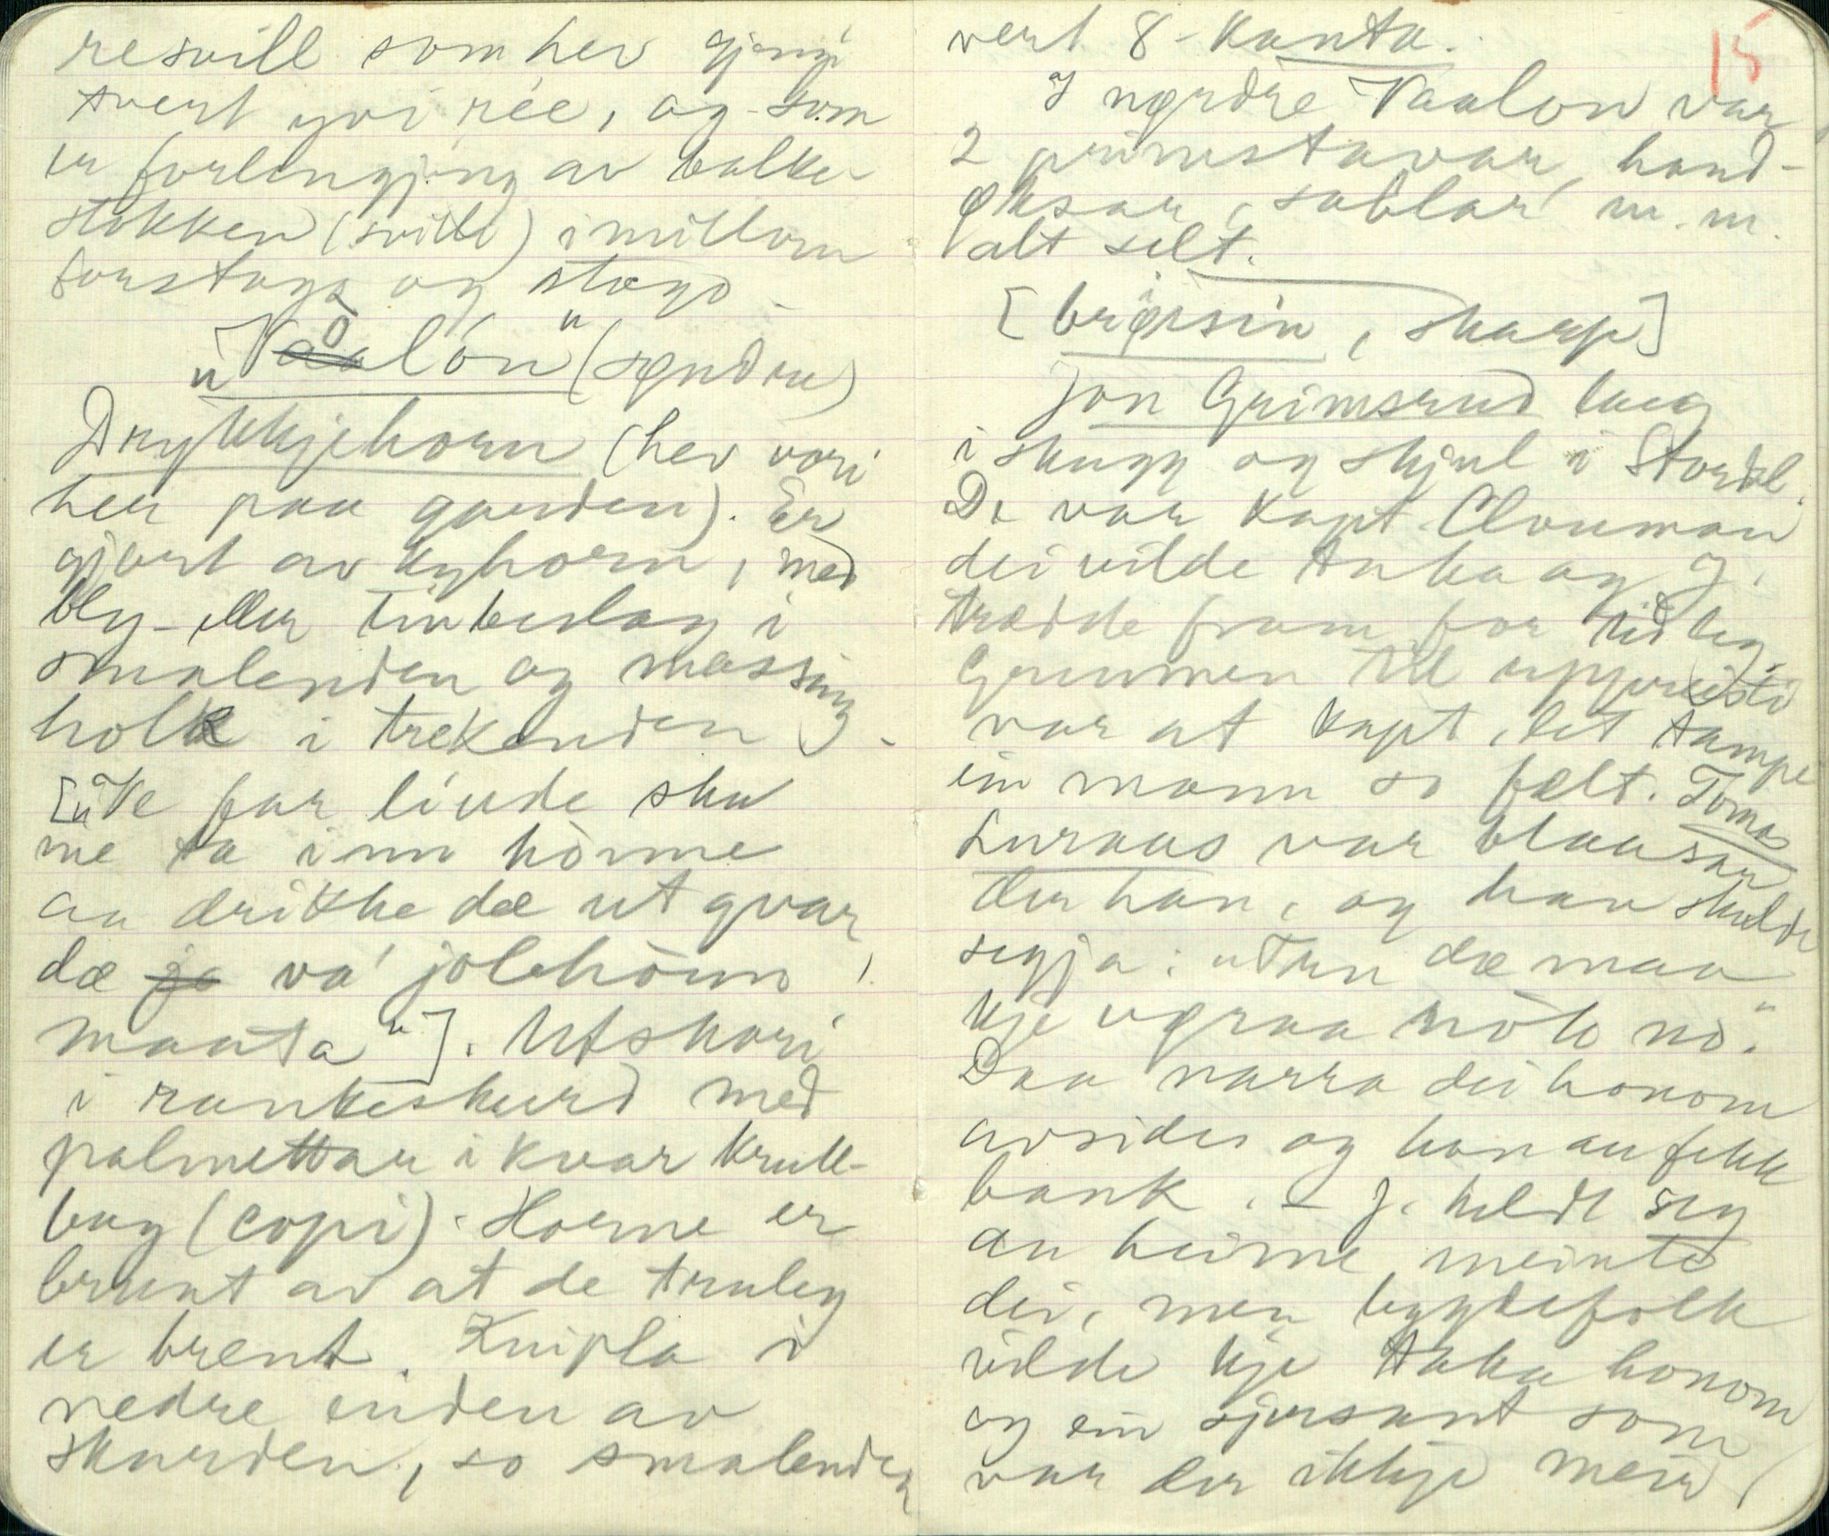 resvill som hev gjengi
tvert yvi rée, og som
er forlengjing av balke-
stokken (svill) imillom
forstoga og stoga.
"Vålón" (søndre)
Drykkjehorn (hev vori
her paa garden). Er
gjort av kyhorn, med
bly- eller tinbeslag i
smalenden og messing
holk i trekenden.
["Te far liude ska
me ta inn hònne
aa drikke dæ ut qvar
dæ ja va' jolehònn
maata"]. Utskori
i rankeskurd med
palmettar i kvar krull-
bug (copi). Horne er
brunt av at de truleg
er brent. Knipla i
nedre enden av
skurden, so smalenden
15
vert 8-kanta.
I nørdre Vaalon var
2 primstavar, hand-
øksar, sablar m.m.
alt selt.
[brøisin, skarp]
Jon Grimsrud laag
i skugg og skjul i Stordal.
De var kapt. Clouman
dei vilde taka og J.
trædde fram for tidleg.
Grunnen til uppreisti
var at kapt. let tampe
ein mann so fælt. Tomas
Luraas var blaasar
der han, og han skulde
segja: "Tru dæ maa
kje vera nòko no."
Daa narra dei honom
avsides og han au fekk
bank. – J. heldt seg
au heime meinte
dei, men bygdefolk
vilde kje taka honom
og ein sjersant som
var der ikkje meir